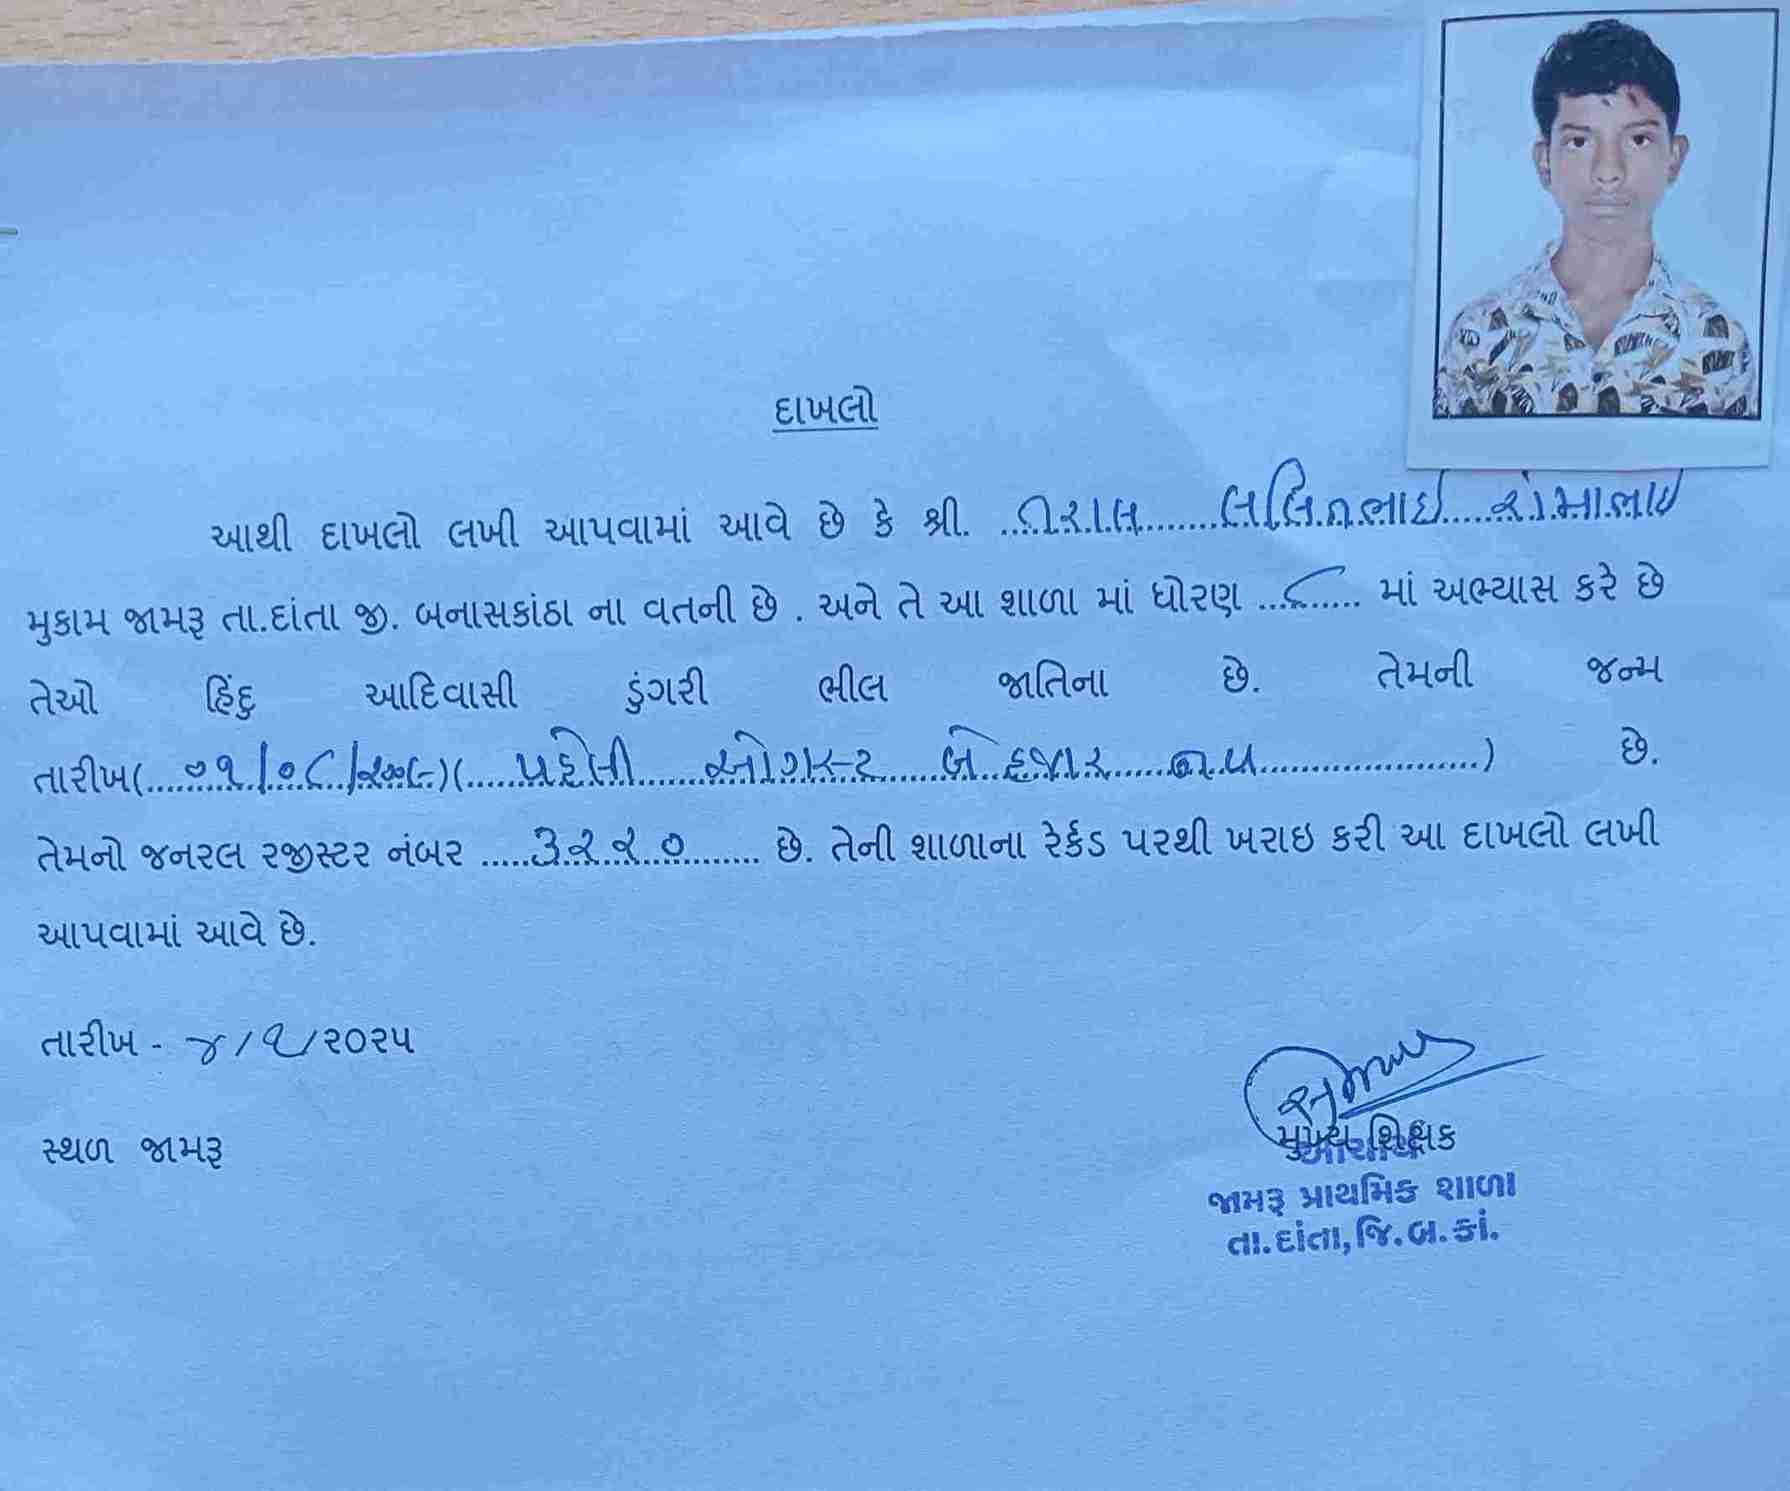 દાખલો
આથી દાખલો લખી આપવામાં આવે છે કે શ્રી. તરાલ લલિતભાઇ
મુકામ જામરૂ તા.દાંતા જી. બનાસકાંઠા ના વતની છે . અને તે આ શાળા માં ધોરણ ૮ માં અભ્યાસ કરે છે
તેઓ હિંદુ આદિવાસી ડુંગરી ભીલ જાતિના છે. તેમની જન્મ
તારીખ(....૦૧/૦૮/....)(....પહેલી ઓગસ્ટ બે હજાર ....) છે.
તેમનો જનરલ રજીસ્ટર નંબર .....૩૨૨૦........ છે. તેની શાળાના રેર્કડ પરથી ખરાઇ કરી આ દાખલો લખી
આપવામાં આવે છે.
તારીખ - ૪/૧/૨૦૨૫
સ્થળ જામરૂ
મુખ્ય શિક્ષક
આચાર્ય
જામરૂ પ્રાથમિક શાળા
તા.દાંતા,જિ.બ.કાં.